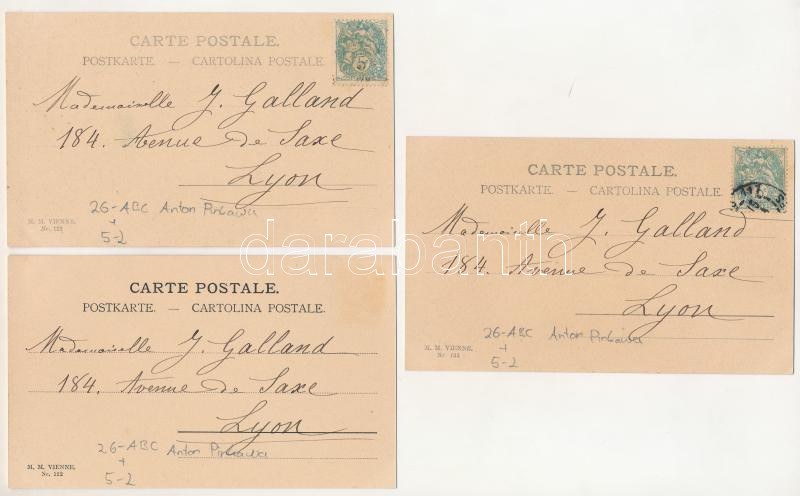 CARTE POSTALE.
POSTKARTE. — CARTOLINA POSTALE.
5
Mademoiselle J. Galland
184. Avenue de Saxe
Lyon
26-ABC Anton Pinkawa
+
5-2
M. M. VIENNE.
Nr. 122
CARTE POSTALE.
POSTKARTE. — CARTOLINA POSTALE.
Mademoiselle J. Galland
184. Avenue de Saxe
Lyon
26-ABC Anton Pinkawa
+
5-2
M. M. VIENNE.
Nr. 122
CARTE POSTALE.
POSTKARTE. — CARTOLINA POSTALE.
Mademoiselle J. Galland
184. Avenue de Saxe
Lyon
26-ABC Anton Pinkawa
+
5-2
M. M. VIENNE.
Nr. 122
darabanth